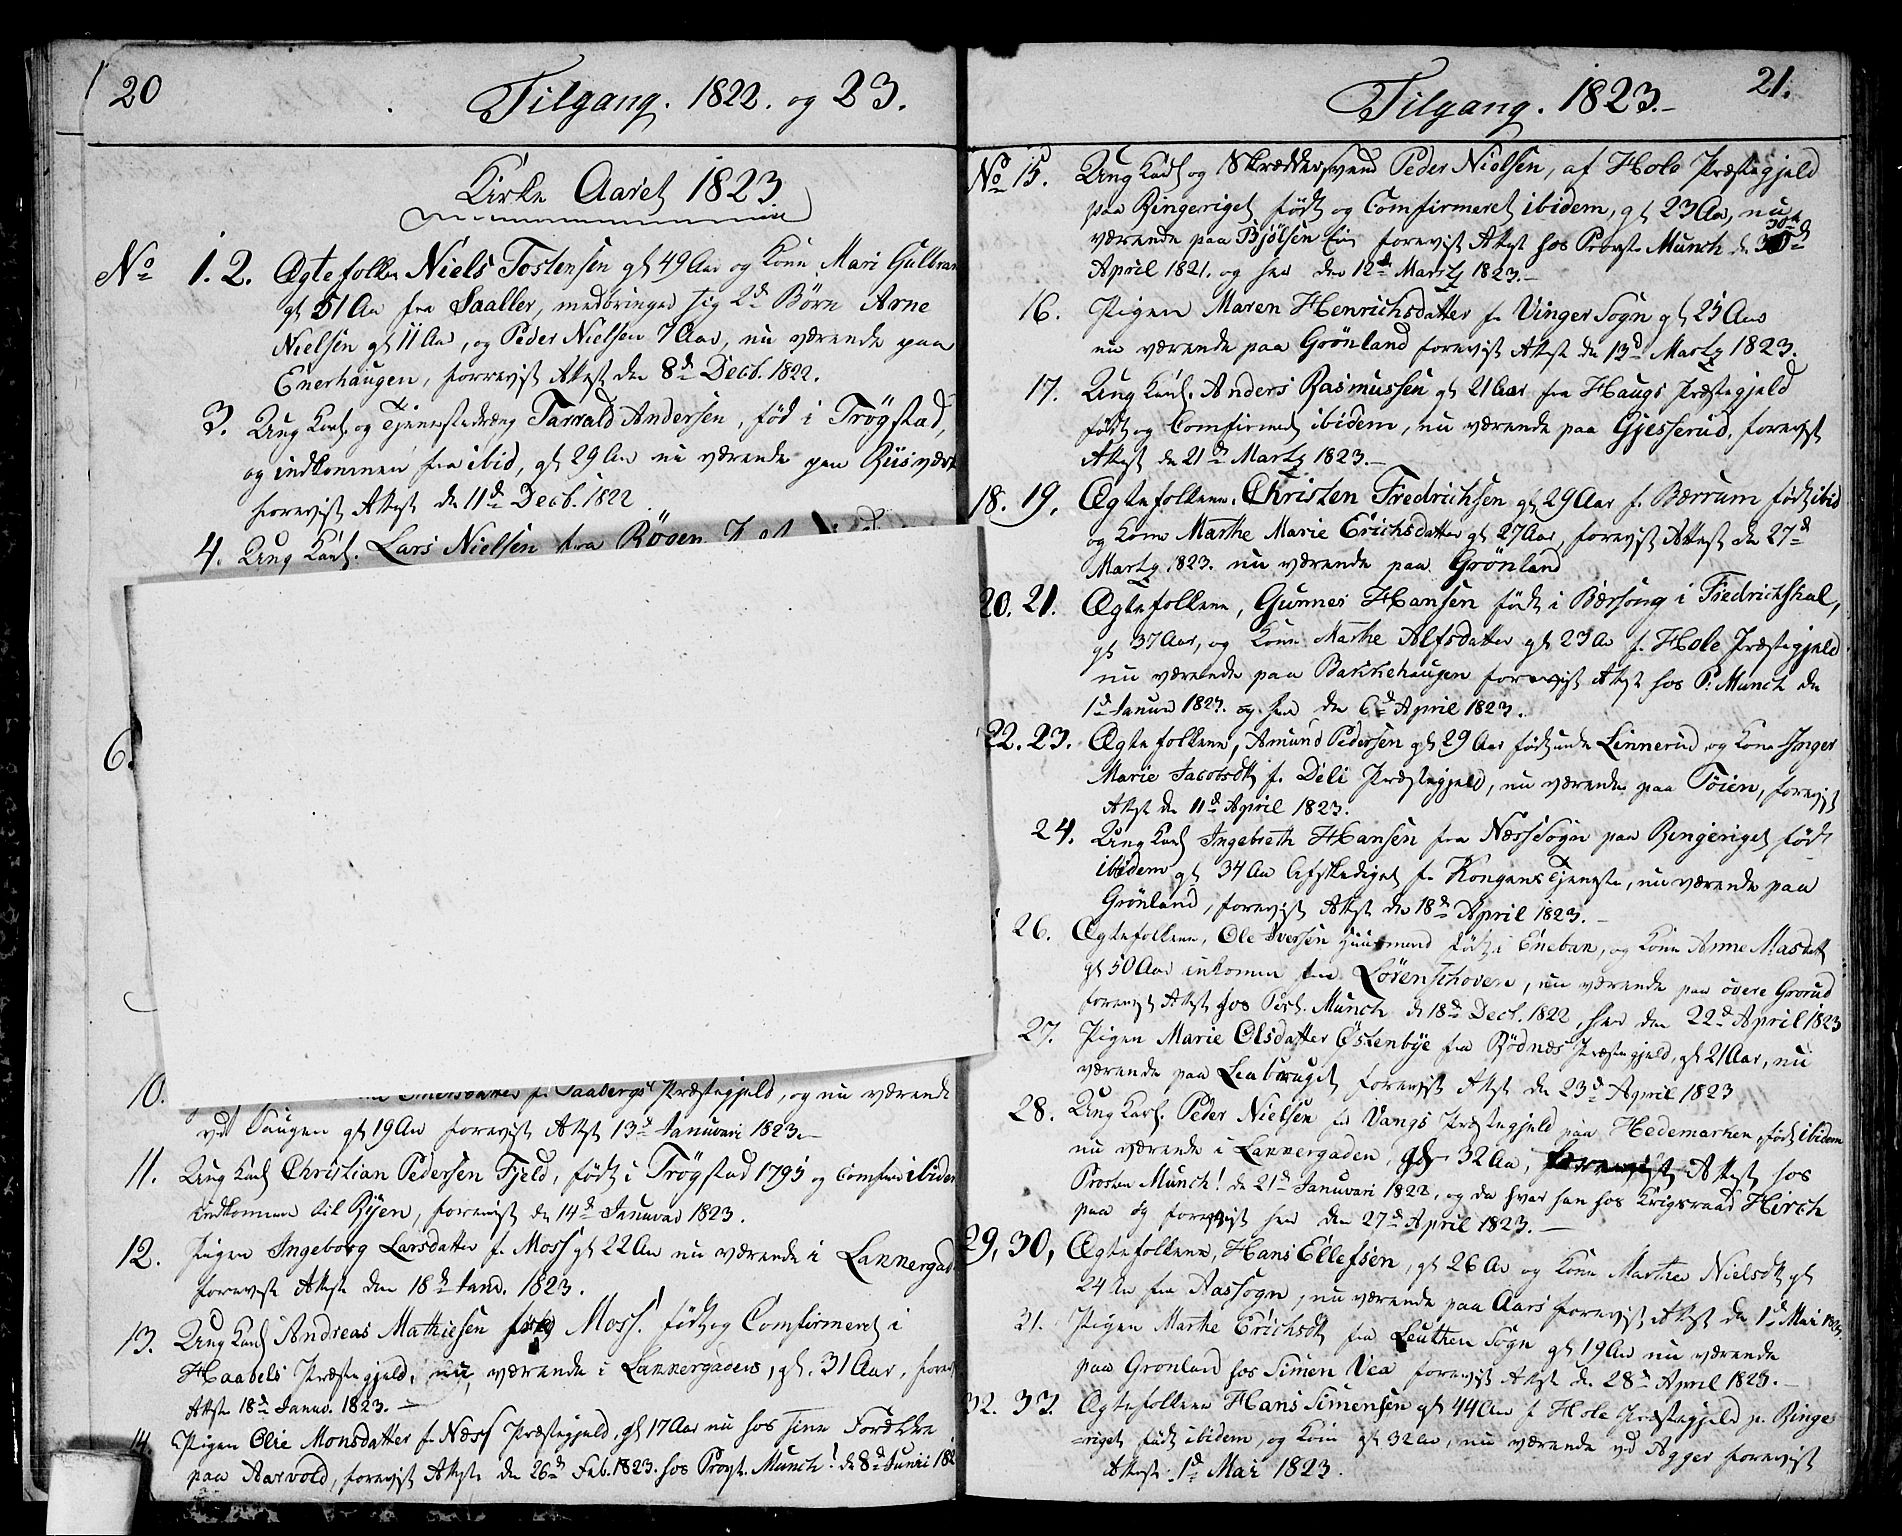 20
Tilgang. 1822. og 23.
Kirke Aaret 1823
No 1. 2. Ægtefolkene Niels Tostensen gl 49 Aar og Kone Mari Gulbran
gl 51 Aar fra Saaller, medbringer sig 2de Børn Arne
Nielsen gl 11 Aar, og Peder Nielsen 7 Aar, nu værende paa
Enerhaugen, forevist Attest den 8de Decb. 1822.
3. Ung Karl og Tjennestedreng Tarrald Andersen, fød i Trøgstad,
og indkommen fra ibid, gl 29 Aar nu værende paa Riisværk
forevist Attest den 11de Decb. 1822
4. Ung Karl. Lars Nielsen fra Røven
6.
10. f. Faabergs Præstegjeld, og nu værende
ved Haugen gl 19 Aar forevist Attest 13de Januari 1823.
11. Ung Karl Christian Pedersen Fjeld, født i Trøgstad 1795 og Comfirm ibidem
indkommen til Ryen, forevist den 14de Januar 1823.
12. Pigen Ingeborg Larsdatter f. Moss gl 22 Aar nu værende i Lannergad
forevist Attest den 18de Janu. 1823.
13. Ung Karl Andreas Mathiesen Moss. født og Comfirmeret i
Haabels Præstegjeld, nu værende i Lannergadens, gl. 31 Aar, forev
Attest 18de Janu. 1823.
14. Pigen Olie Monsdatter f. Næss Præstegjeld, gl 17 Aar nu hos sine Forældre
paa Aarvold, forevist Attest den 26de Feb. 1823. hos Provst. Munch! d 8de Junii 182
21.
Tilgang. 1823.
No 15. Ung Karl og Skræddersvend Peder Nielsen, af Hole Præstegjeld
paa Ringeriget født og Comfirmeret ibidem, gl 23 Aar, nu
værende paa Bjølsen forevist Attest hos Provst Munch d. 30te
April 1821. og her den 12de Martz 1823.
16. Pigen Maren Henrichsdatter f. Vinger Sogn gl 25 Aar
nu værende paa Grønland forevist Attest den 13de Martz 1823.
17. Ung Karl. Anders Rasmussen gl 21 Aar fra Haugs Præstegjeld
født og Comfirmeret ibidem, nu værende paa Gjesserud, forevist
Attest den 21de Martz 1823.
18. 19. Ægtefolkene. Christen Fredrichsen gl 29 Aar f. Bærrum født ibid
og Kone Marthe Marie Erichsdatter gl 27 Aar, forevist Attest den 27de
Martz 1823. nu værende paa Grønland
20. 21. Ægtefolkene, Gunnes Hansen født i Bærsong i Fredrichshal,
gl 37 Aar, og Kone Marthe Alfsdatter gl 23 Aar f. Hole Præstegjeld
nu værende paa Bakkehaugen forevist Attest hos P: Munch den
1de Januar 1823. og her den 6de April 1823.
22. 23. Ægtefolkene, Amund Pedersen gl 29 Aar født under Linnerud, og Kone Inger
Marie Jacobsdt f. Deli Præstegjeld, nu værende paa Tøien, forevist
Attest den 11de April 1823.
24. Ung Karl Ingebreth Hansen fra Næss Sogn paa Ringeriget født
ibidem gl 34 Aar Afskediget f. Kongens Tjeneste, nu værende paa
Grønland, forevist Attest den 18de April 1823.
26. Ægtefolkene, Ole Iversen Huusmand født i Eneban, og Kone Anne Masdatt
gl 50 Aar inkomen fra Lørenschoven, nu værende paa øvere Grorud
forevist Attest hos Munch d 18de Decb. 1822, her den 22de April 1823
27. Pigen Marie Olsdatter Østenbye fra Rødnæs Præstegjeld, gl 21 Aar, nu
værende paa Leabruget forevist Attest den 23de April 1823
28. Ung Karl. Peder Nielsen fra Vangs Præstegjeld paa Hedemarken, født ibidem
nu værende i Lannergaden, gl 32 Aar, forevist Attest hos
Provsten Munch! den 21de Januari 1822, og da hvar han hos Krigsraad Hirch
paa og forevist her den 27de April 1823.
29, 30, Ægtefolkene, Hans Ellefsen, gl 26 Aar og Kone Marthe Nielsdt gl
24 Aar fra Aassogn, nu værende paa Aars forevist Attest den 1de Mai 1823.
31. Pigen Marthe Erichsdt fra Leuthen Sogn gl 19 Aar nu værende
paa Grønland hos Simen Vea forevist Attest den 28de April 1823.
32. 33. Ægtefolkene Hans Simensen gl 44 Aar f. Hole Præstegjeld p. Ringe
=riget født ibidem, og Kone gl 32 Aar, nu værende ved Agger forevist
Attest. 1de Mai 1823.